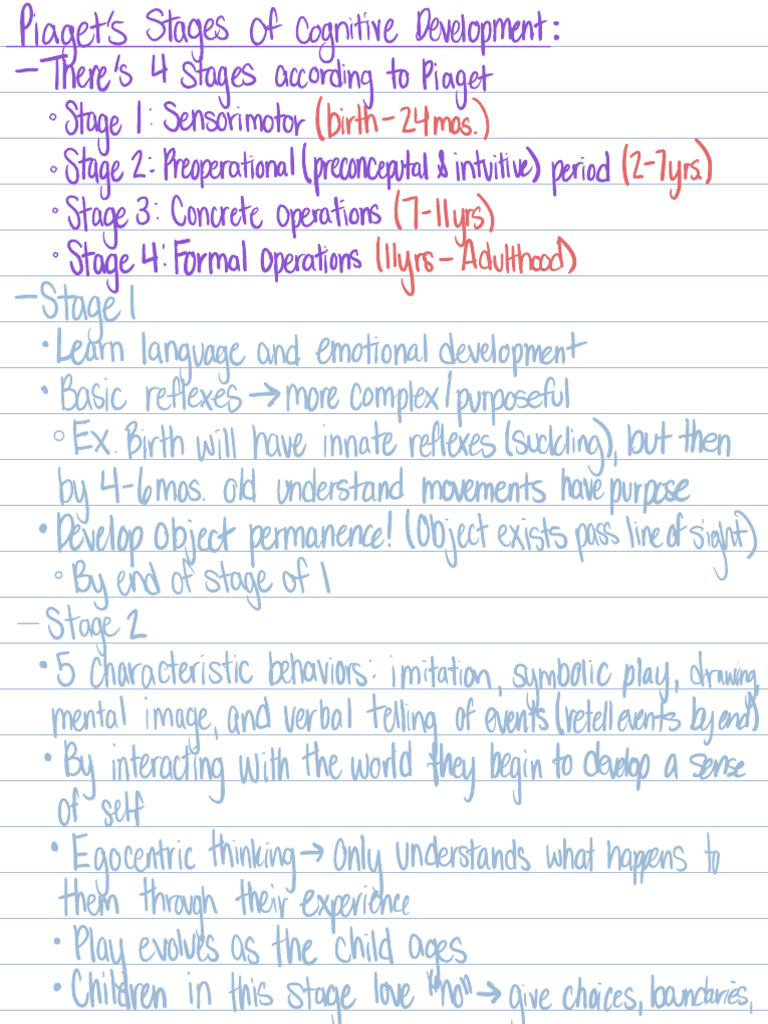 Piaget's Stages of Cognitive Development:
- There's 4 stages according to Piaget
◦ Stage 1: Sensorimotor (birth - 24mos.)
◦ Stage 2: Preoperational (preconceputal & intuitive) period (2-7yrs.)
◦ Stage 3: Concrete operations (7-11yrs)
◦ Stage 4: Formal Operations (11yrs - Adulthood)
- Stage 1
• Learn language and emotional development
• Basic reflexes → more complex/purposeful
◦ Ex. Birth will have innate reflexes (suckling), but then
by 4-6mos. old understand movements have purpose
• Develop object permanence! (Object exists pass line of sight)
◦ By end of stage of 1
- Stage 2
• 5 characteristic behaviors: imitation, symbolic play, drawing,
mental image, and verbal telling of events (retell events by end)
• By interacting with the world they begin to develop a sense
of self
• Egocentric thinking → Only understands what happens to
them through their experience
• Play evolves as the child ages
• Children in this stage love "no" → give choices, boundaries,